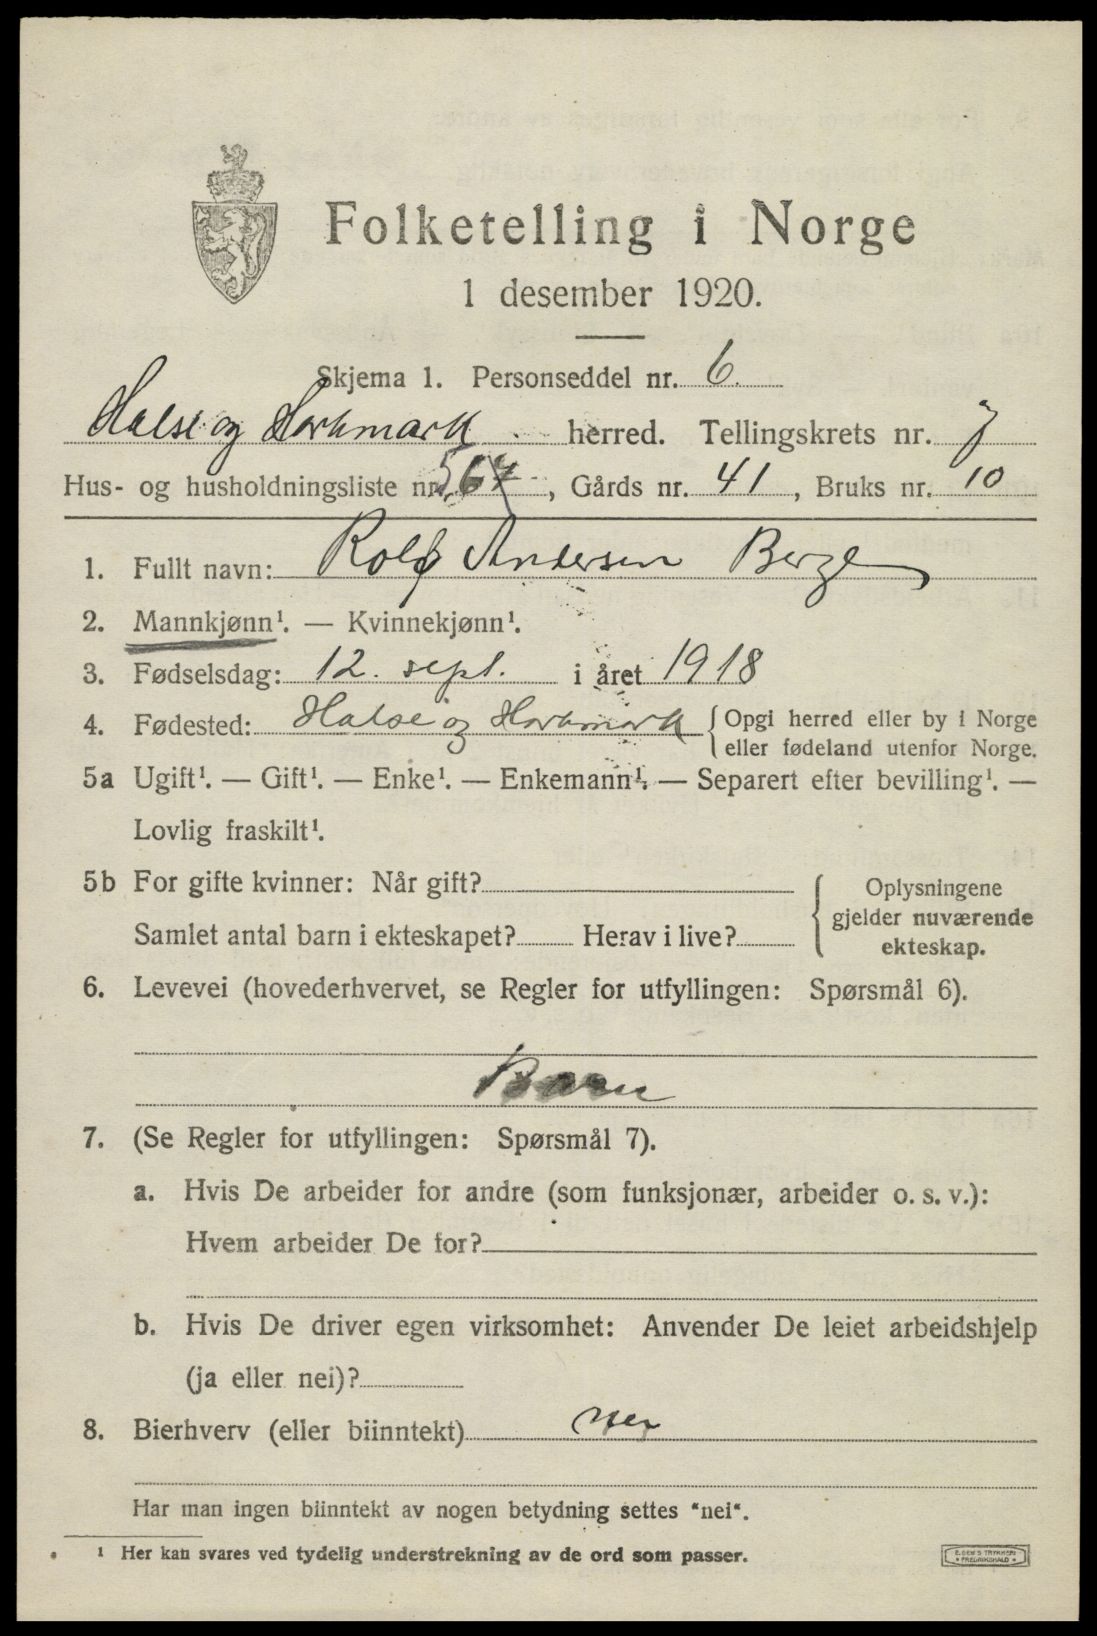 Folketelling i Norge
1 desember 1920.
Skjema 1. Personseddel nr. 6.
Halse og Harkmark herred. Tellingskrets nr. 7
Hus- og husholdningsliste nr. , Gårds nr. 41, Bruks nr. 10
1. Fullt navn: Rolf Andersen Berge
2. Mannkjønn¹. — Kvinnekjønn¹.
3. Fødselsdag: 12. sept. i året 1918
4. Fødested: Halse og Harkmark { Opgi herred eller by i Norge
eller fødeland utenfor Norge.
5a Ugift¹. — Gift¹. — Enke¹. — Enkemann¹. — Separert efter bevilling¹. —
Lovlig fraskilt¹.
5b For gifte kvinner: Når gift? { Oplysningene
gjelder nuværende
Samlet antal barn i ekteskapet? Herav i live?
ekteskap.
6. Levevei (hovederhvervet, se Regler for utfyllingen: Spørsmål 6).
Barn
7. (Se Regler for utfyllingen: Spørsmål 7).
a. Hvis De arbeider for andre (som funksjonær, arbeider o. s. v.):
Hvem arbeider De for?
b. Hvis De driver egen virksomhet: Anvender De leiet arbeidshjelp
(ja eller nei)?
8. Bierhverv (eller biinntekt) nei
Har man ingen biinntekt av nogen betydning settes "nei".
¹ Her kan svares ved tydelig understrekning av de ord som passer.